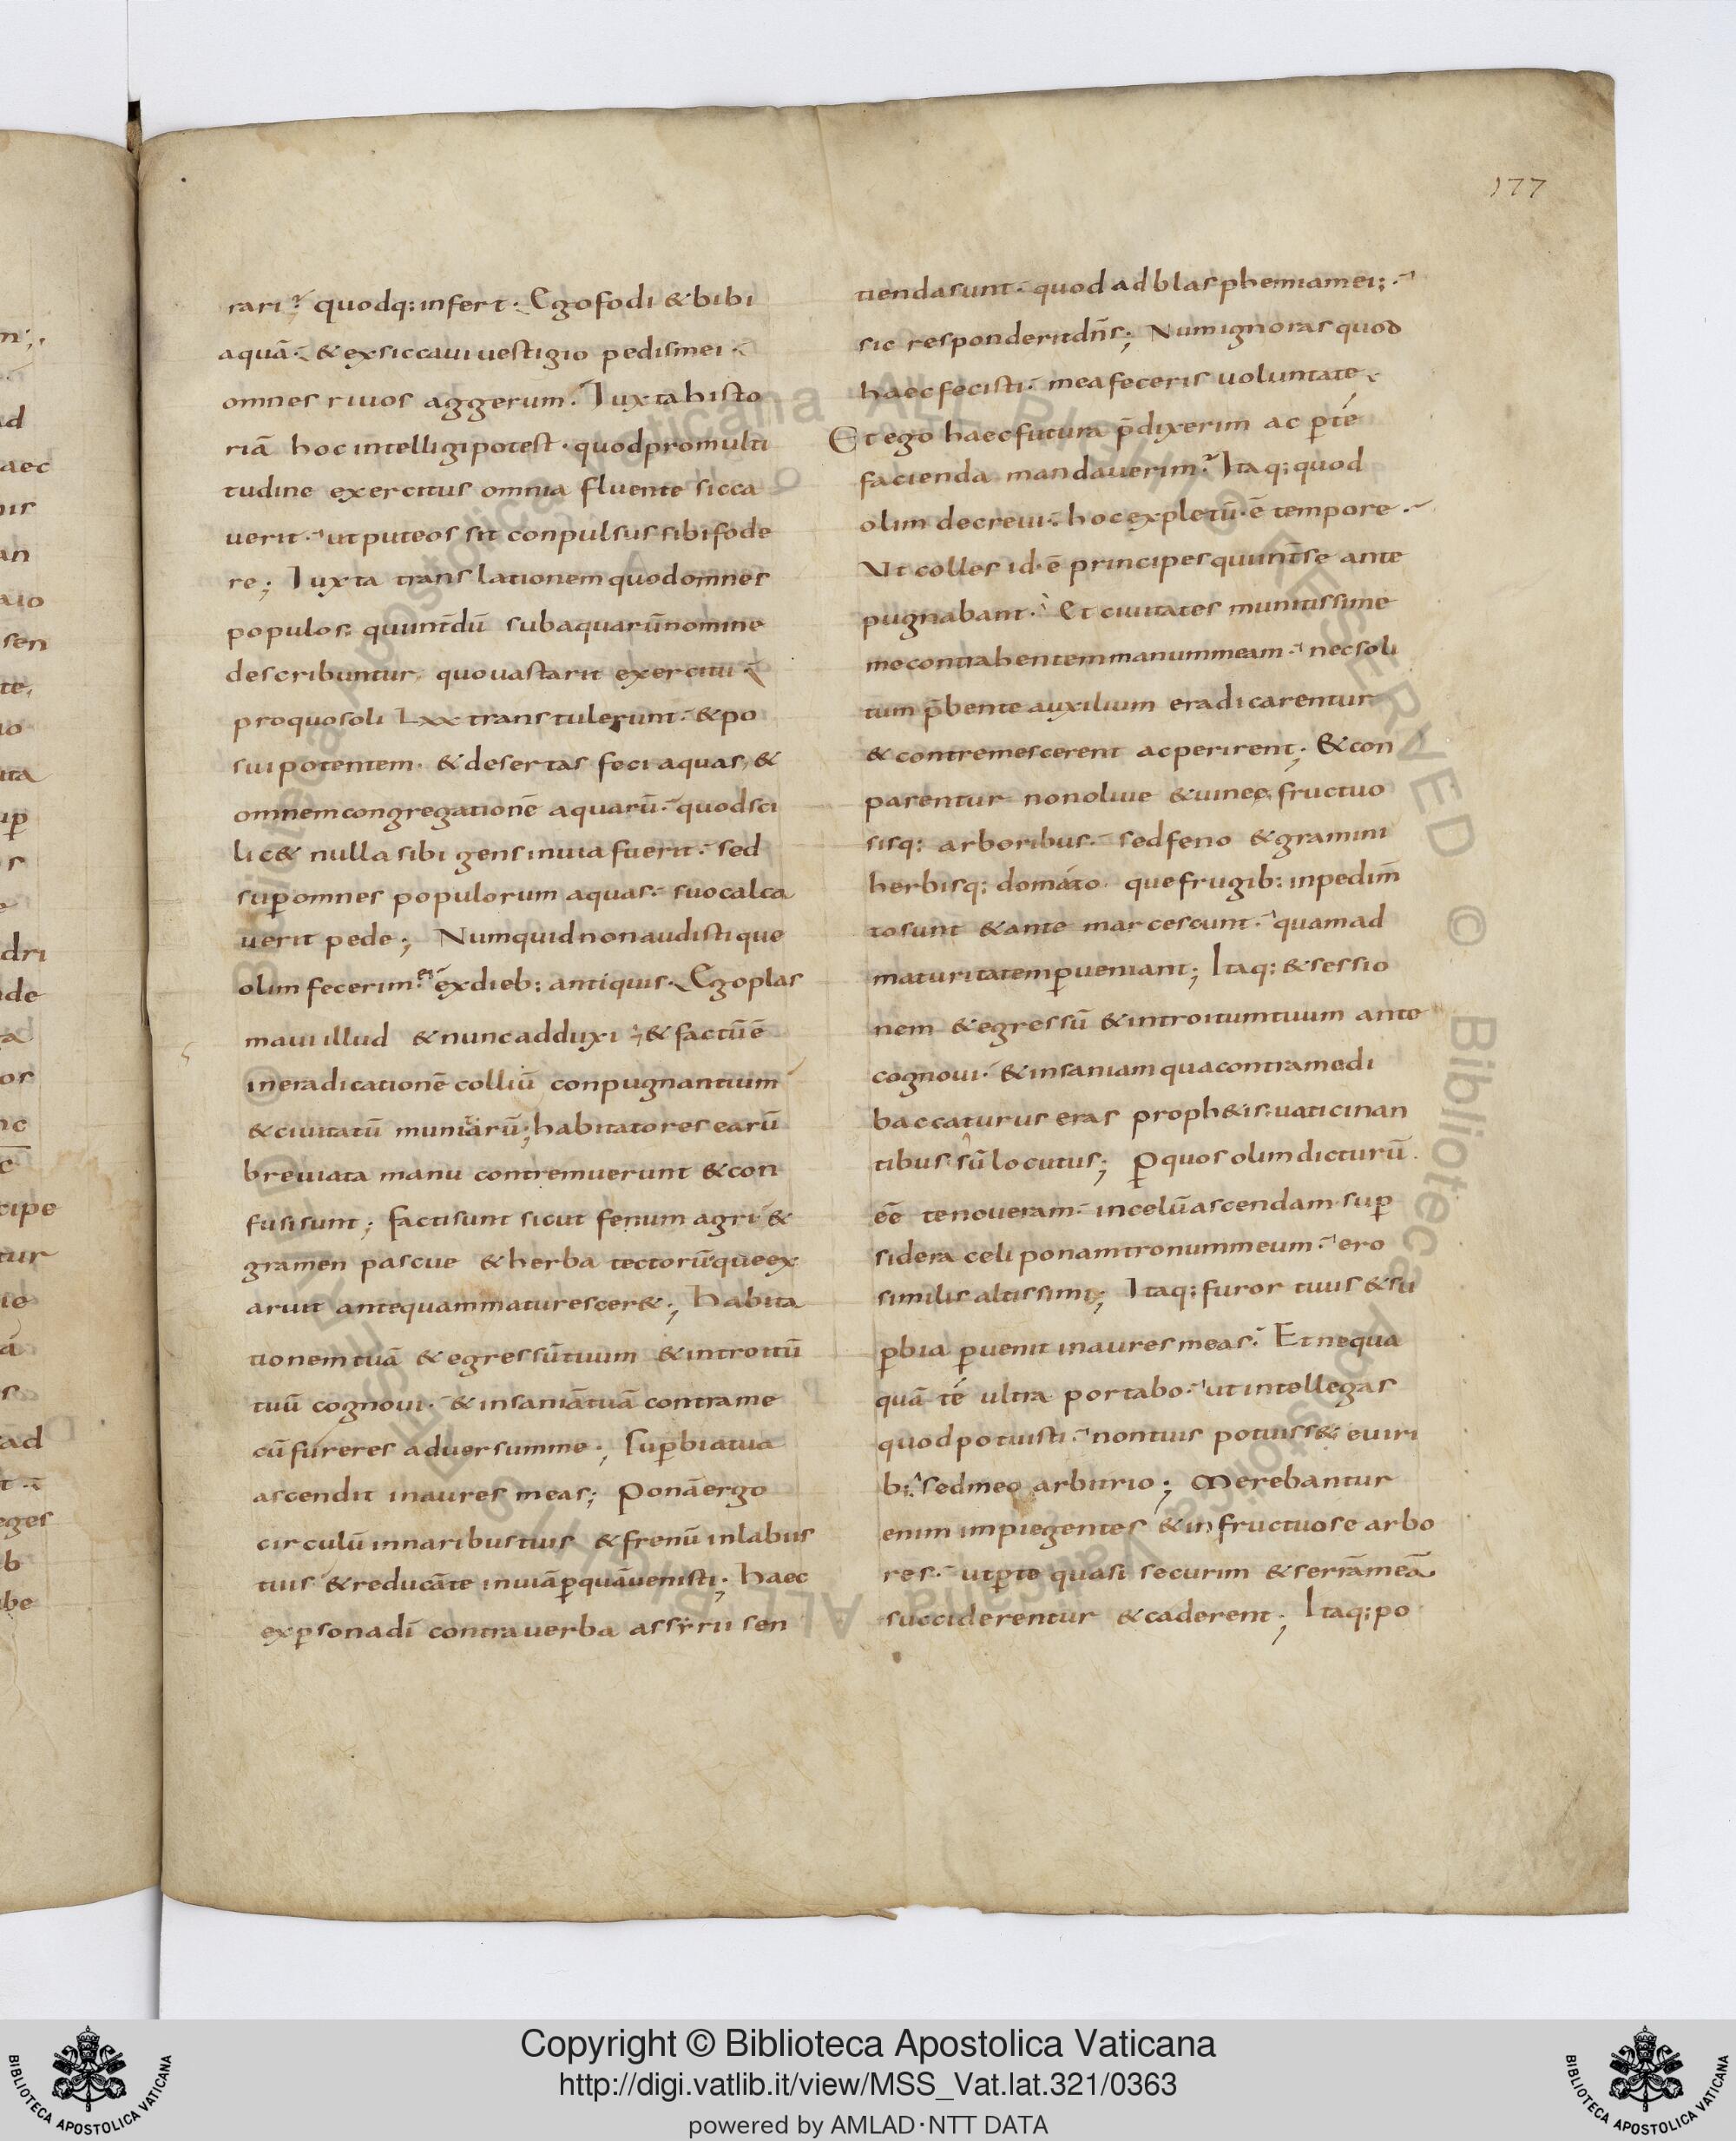 177
rari? quodq: infert. Ego fodi & bibi
aquā. & exsiccaui uestigio pedis mei.
omnes riuos aggerum. Iuxta histo
riā hoc intelligi potest. quod pro multi
tudine exercitus omnia fluente sicca
uerit. ut puteos sit conpulsus sibi fode
re; Iuxta translationem quod omnes
populos: qui int̄dū sub aquarū nomine
describuntur, quo uastarit exercitu.
pro quo soli Lxx transtulerunt. & po
sui potentem. & desertas feci aquas, &
omnem congregationē aquarū. quod sci
lic& nulla sibi gens inuia fuerit. sed
sup omnes populorum aquas. suo calca
uerit pede; Numquid non audisti que
olim fecerim ei? ex dieb: antiquis. Ego plas
maui illud & nunc adduxi; & factū ē
in eradicationē colliū conpugnantium
& ciuitatū munitarū; habitatores earū
breuiata manu contremuerunt & con
fusi sunt; facti sunt sicut fenum agri &
gramen pascue & herba tectorū que ex
aruit antequam maturescer&; Habita
tionem tuā & egressū tuum & introitū
tuū cognoui. & insaniā tuā contra me
cū fureres aduersum me; supbia tua
ascendit in aures meas; Ponā ergo
circulū in naribus tuis & frenū in labiis
tuis & reducā te in uiā p quā uenisti; Haec
ex psona dī contra uerba assyrii sen
tienda sunt. quod ad blasphemia mei;
sic responderit dn̄s; Num ignoras quod
haec fecisti. mea feceris uoluntate.
Et ego haec futura p̄dixerim ac p te
facienda mandauerim? Itaq: quod
olim decreui. hoc expletū. ē tempore.
Ut colles id. ē principes qui int̄ se ante
pugnabant. Et ciuitates munitissime
me contrahentem manum meam. nec soli
tum p̄bente auxilium eradicarentur
& contremescerent ac perirent; & con
parentur non oliue & uinee fructuo
sisq: arboribus. sed feno & gramini
herbisq: domato. que frugib: inpedim̄
to sunt & ante marcescunt. quam ad
maturitatem pueniant; Itaq: & sessio
nem & egressū & introitum tuum ante
cognoui. & insaniam qua contra me di
baccaturus eras proph&is uaticinan
tibus sū locutus; p quos olim dicturū
eē te noueram. in celū ascendam. sup
sidera celi ponam tronum meum. ero
similis altissimi; Itaq: furor tuus & su
pbia puenit in aures meas. Et nequa
quā te ultra portabo. ut intellegas
quod potuisti. non tuis potuisse & euiri
b: sed meo arbitrio; Merebantur
enim impie gentes & infructuose arbo
res. ut p te quasi securim & serrā meā
succiderentur & caderent; Itaq: po
Copyright © Biblioteca Apostolica Vaticana
http://digi.vatlib.it/view/MSS_Vat.lat.321/0363
powered by AMLAD·NTT DATA
BIBLIOTECA APOSTOLICA VATICANA
BIBLIOTECA APOSTOLICA VATICANA